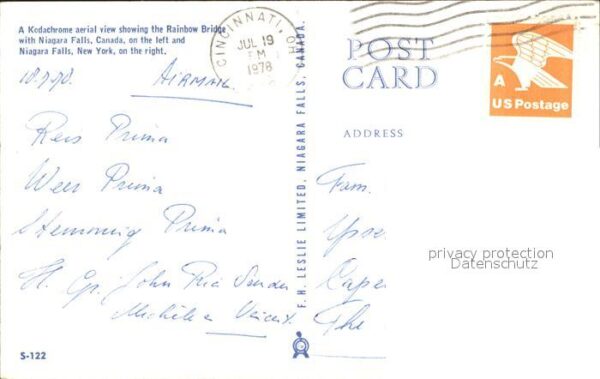 A Kodachrome aerial view showing the Rainbow Bridge
with Niagara Falls, Canada, on the left and
Niagara Falls, New York, on the right.
CINCINNATI, OH
JUL 19
PM
1978
18.7.78. AIRMAIL
Reis Prima
Weer Prima
Stemming Prima
John Ria Sander
Michel
Vincent
S-122
F. H. LESLIE LIMITED, NIAGARA FALLS, CANADA.
POST
CARD
A
US Postage
ADDRESS
Fam.
The
privacy protection
Datenschutz